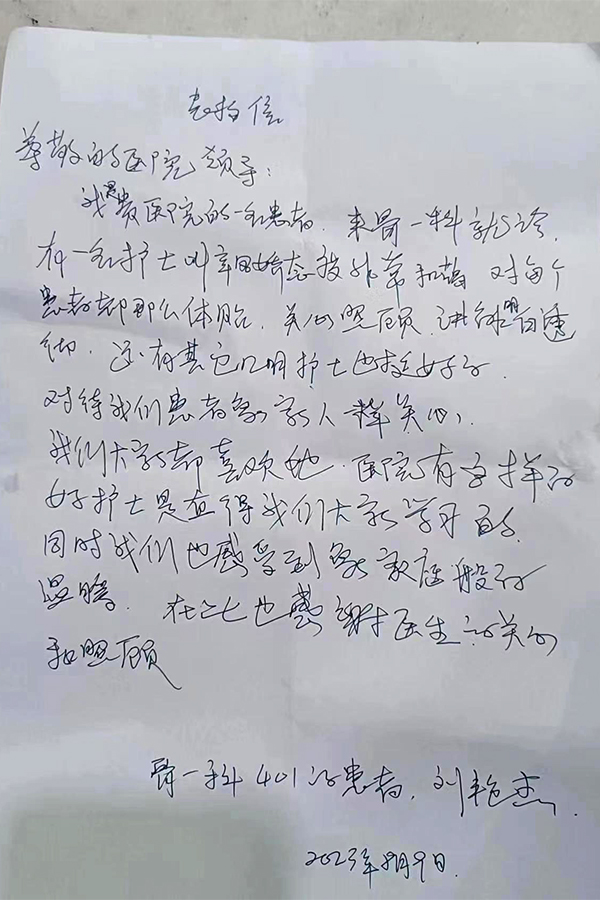 表扬信
尊敬的医院领导：
我是贵医院的一名患者，来骨一科就诊，
有一名护士叫辛明娇态度非常和蔼 对每个
患者都那么体贴，关心照顾，进行
还有其它几名护士也挺好的，
对待我们患者象家人一样关心，
我们大家都喜欢她，医院有这样的
好护士是值得我们大家学习的，
同时我们也感受到象家庭般的
温暖，在此也感谢医生的关心
和照顾
骨一科401的患者，刘艳杰，
2023年8月9日